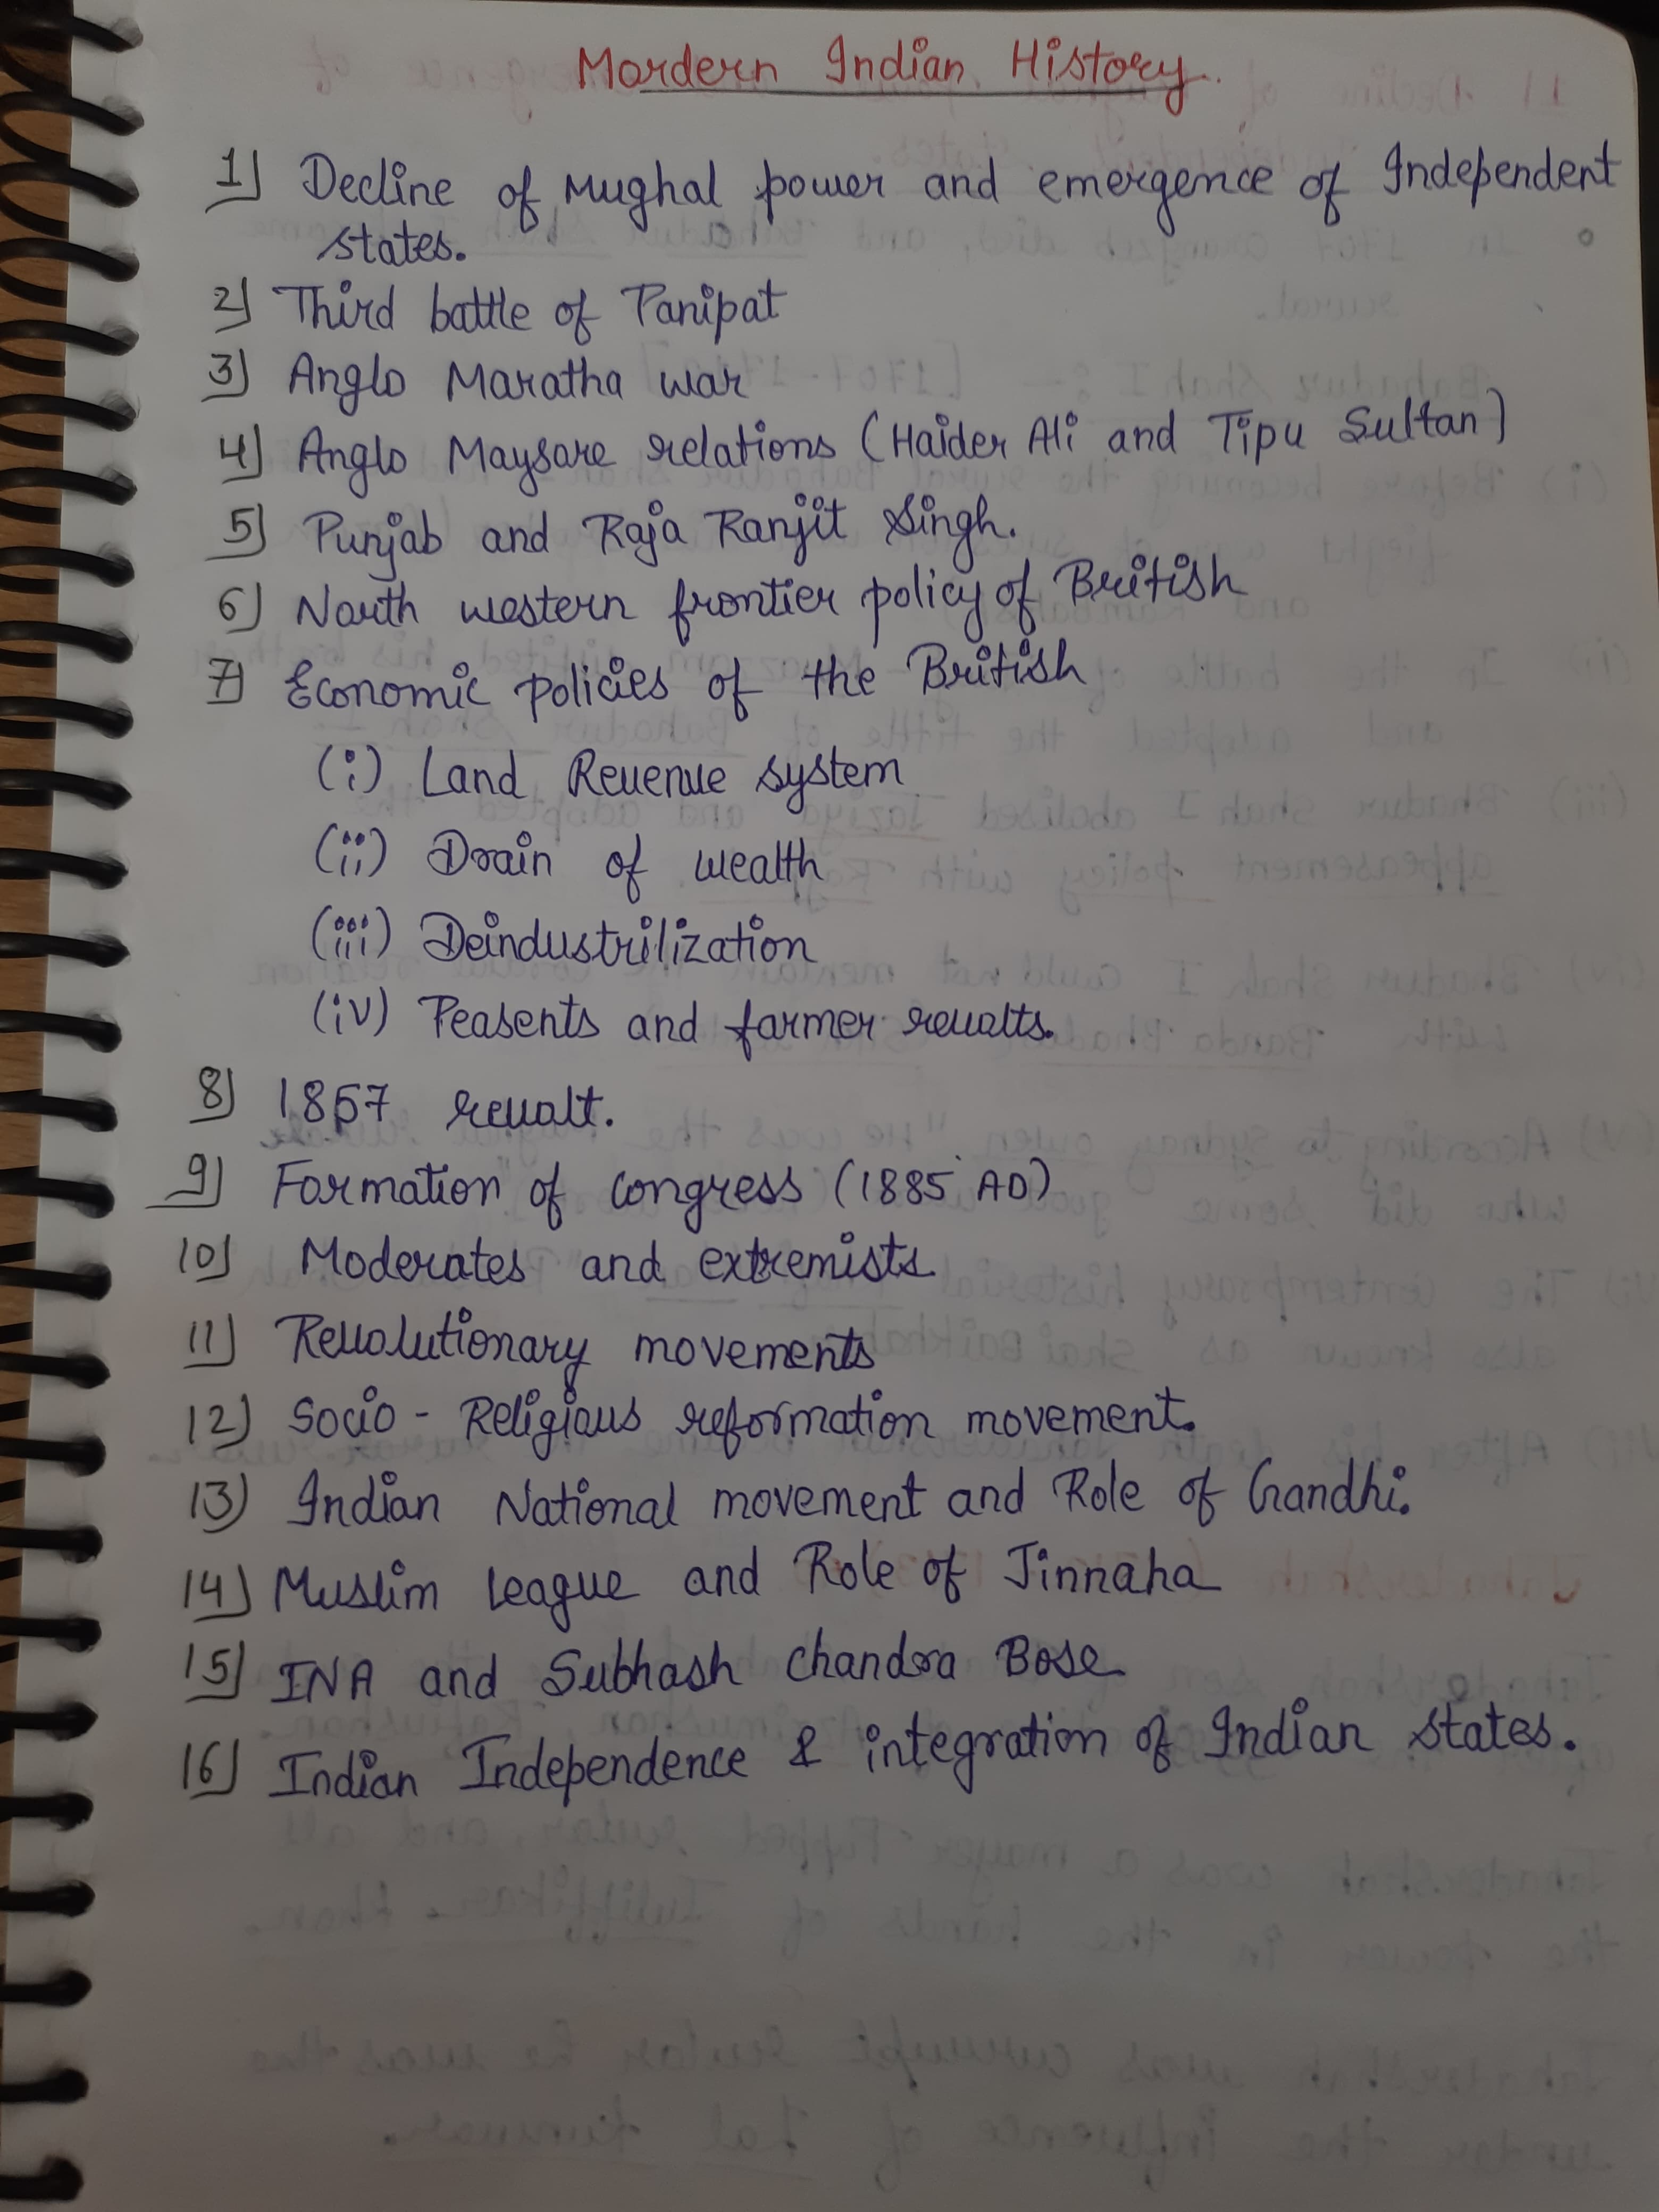 Mordern Indian History
1) Decline of Mughal power and emergence of Independent
states.
2) Third battle of Panipat
3) Anglo Maratha war
4) Anglo Maysore relations (Haider Ali and Tipu Sultan)
5) Punjab and Raja Ranjit Singh.
6) North western frontier policy of British
7) Economic policies of the British
(i) Land Revenue system
(ii) Drain of wealth
(iii) Deindustrilization
(iv) Peasents and farmer revolts.
8) 1857 revolt.
9) Formation of congress (1885 AD)
10) Moderates and extremists.
11) Revolutionary movements
12) Socio - Religious reformation movement.
13) Indian National movement and Role of Gandhi.
14) Muslim League and Role of Jinnaha
15) INA and Subhash Chandra Bose
16) Indian Independence & integration of Indian states.